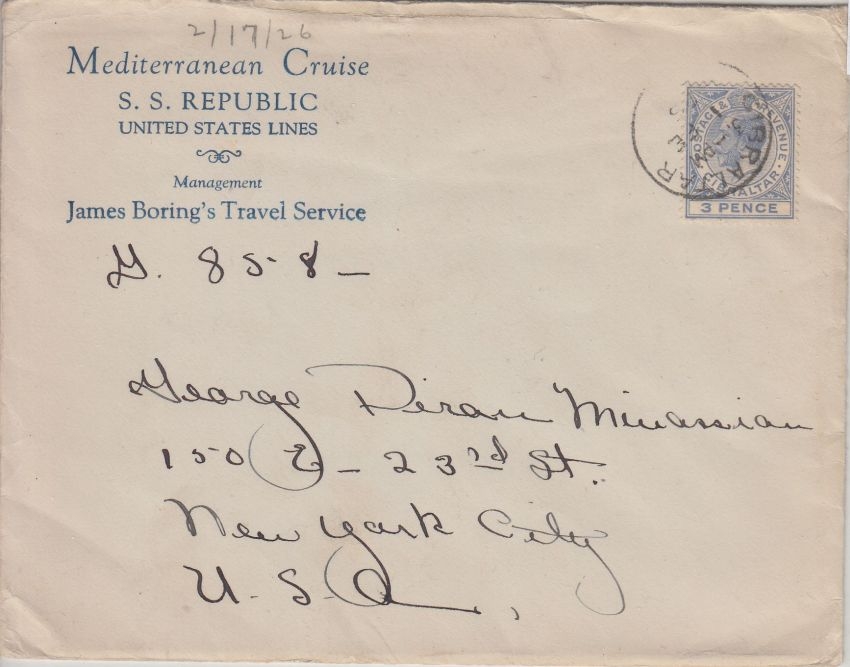 2/17/26
Mediterranean Cruise
S. S. REPUBLIC
UNITED STATES LINES
Management
James Boring's Travel Service
POSTAGE & REVENUE
GIBRALTAR
3 PENCE
G. 858-
George Diran Minassian
150 E - 23rd St.
New York City
U.S.A.